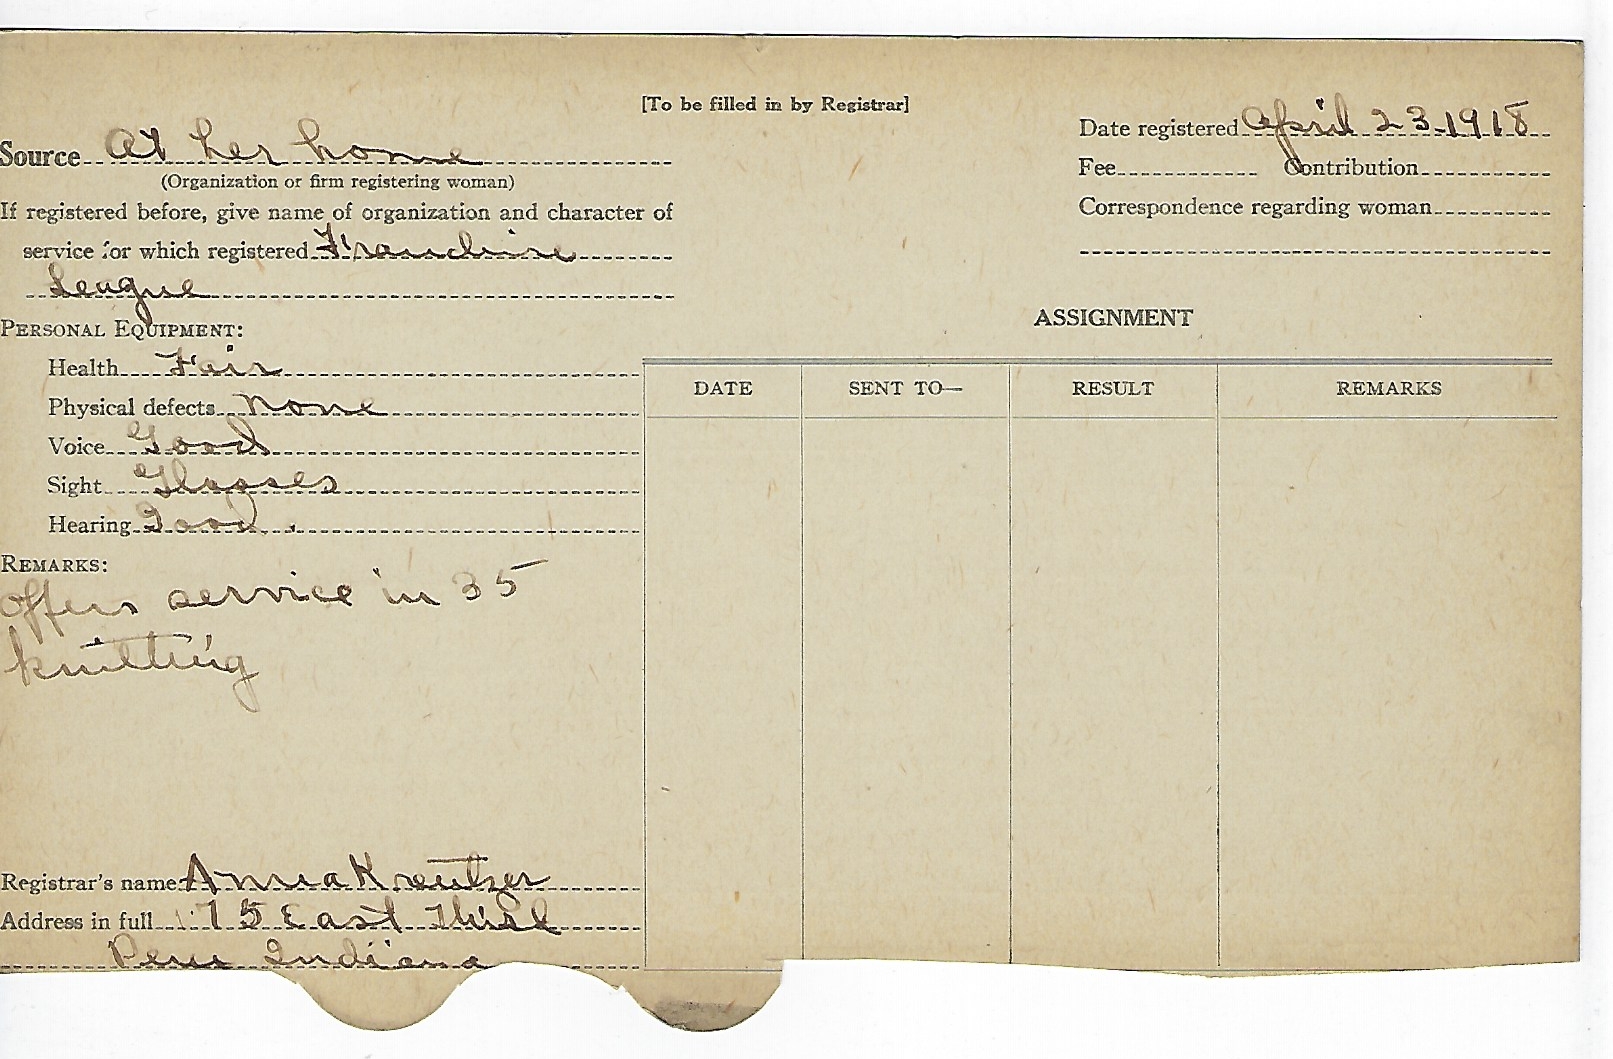 [To be filled in by Registrar]
Source At her home
(Organization or firm registering woman)
If registered before, give name of organization and character of
service for which registered Franchise
League
PERSONAL EQUIPMENT:
Health Fair
Physical defects None
Voice Good
Sight Glasses
Hearing Good.
REMARKS:
offers service in 35
knitting
Registrar's name Anna Kreutzer
Address in full 175 East Third
Peru Indiana
Date registered April 23-1918
Fee Contribution
Correspondence regarding woman
ASSIGNMENT
DATE SENT TO— RESULT REMARKS